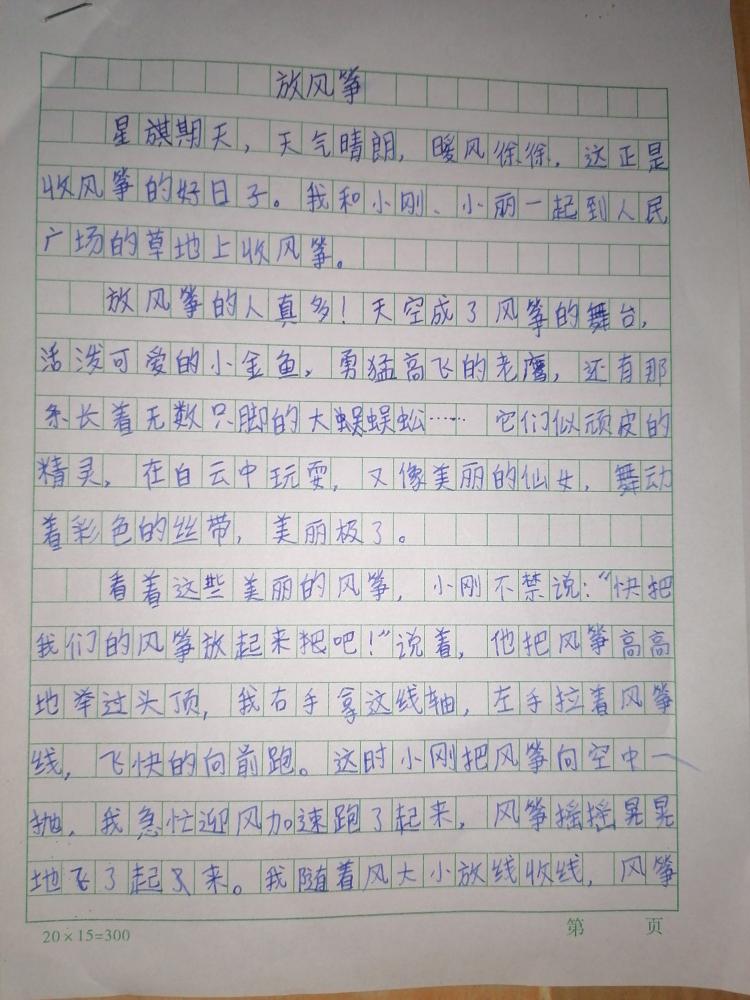 放风筝
星旗期天，天气晴朗，暖风徐徐，这正是
收风筝的好日子。我和小刚、小丽一起到人民
广场的草地上收风筝。
放风筝的人真多！天空成了风筝的舞台，
活泼可爱的小金鱼，勇猛高飞的老鹰，还有那
条长着无数只脚的大蜈蜈蚣……它们似顽皮的
精灵，在白云中玩耍，又像美丽的仙女，舞动
着彩色的丝带，美丽极了。
看着这些美丽的风筝，小刚不禁说：“快把
我们的风筝放起来把吧！”说着，他把风筝高高
地举过头顶，我右手拿这线轴，左手拉着风筝
线，飞快的向前跑。这时小刚把风筝向空中一
抛，我急忙迎风加速跑了起来，风筝摇摇晃晃
地飞了起又来。我随着风大小放线收线，风筝
20×15=300 第 页